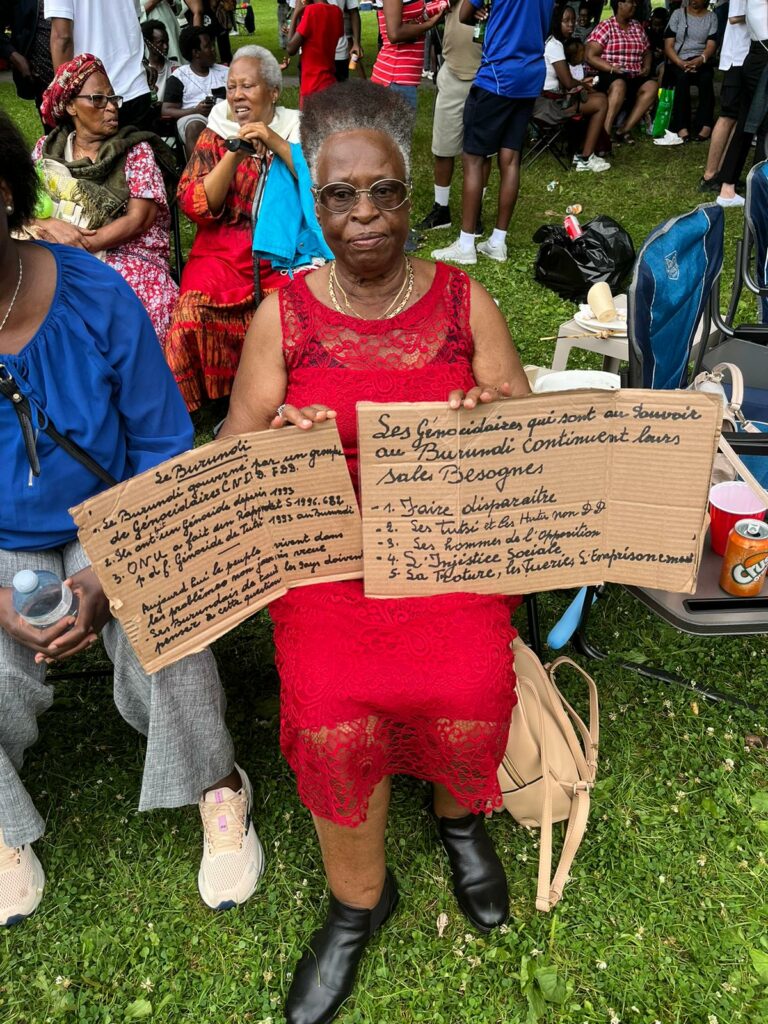 Le Burundi
1. Le Burundi gouverné par un groupe
de Génocidaires C.N.D.D. FDD.
2. Ils ont un Génocide depuis 1993
3. ONU a fait un Rapport S-1996.682
Génocide de Tutsi 1993 au Burundi
Aujourd'hui le peuple vivent dans
les problèmes non jamais vécue
Les Burundais de tout les pays doivent
penser à cette question
Les Génocidaires qui sont au Pouvoir
au Burundi Continuent leurs
sales Besognes
- 1. Faire disparaître
- 2. Les Tutsi et les Hutus non DD
- 3. Les hommes de l'Opposition
- 4. L'Injustice Sociale
5. La Torture, les Tueries, L'Emprisonement
Crush